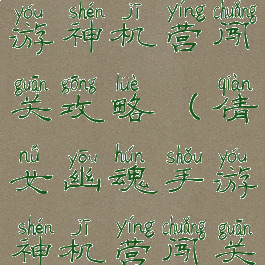 yóu shén jī yíng chuǎng
游神机营闯
guān gōng lüè qiàn
关攻略（倩
nǚ yōu hún shǒu yóu
女幽魂手游
shén jī yíng chuǎng guān
神机营闯关